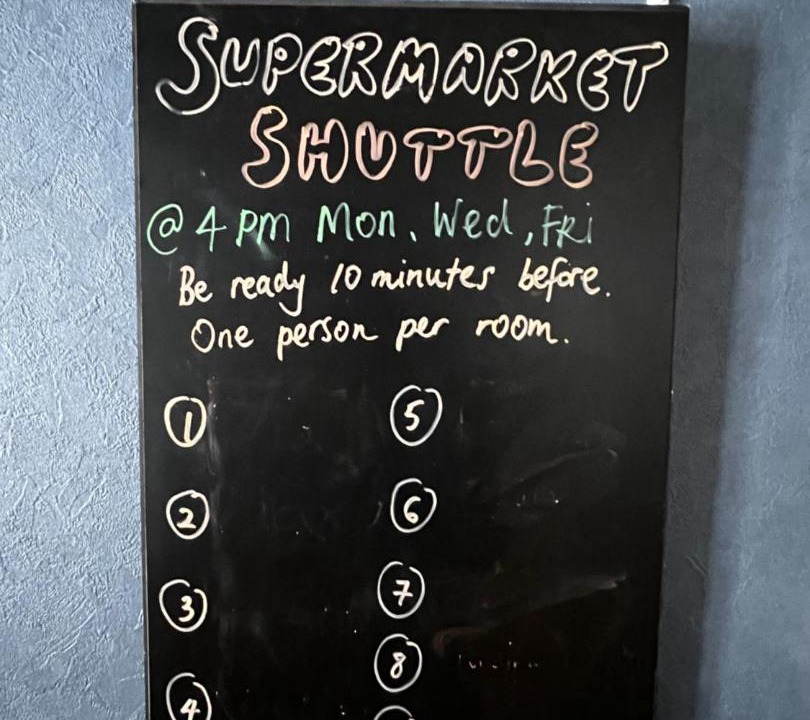 SUPERMARKET
SHUTTLE
@ 4 pm Mon, Wed, Fri
Be ready 10 minutes before.
One person per room.
1
2
3
4
5
6
7
8